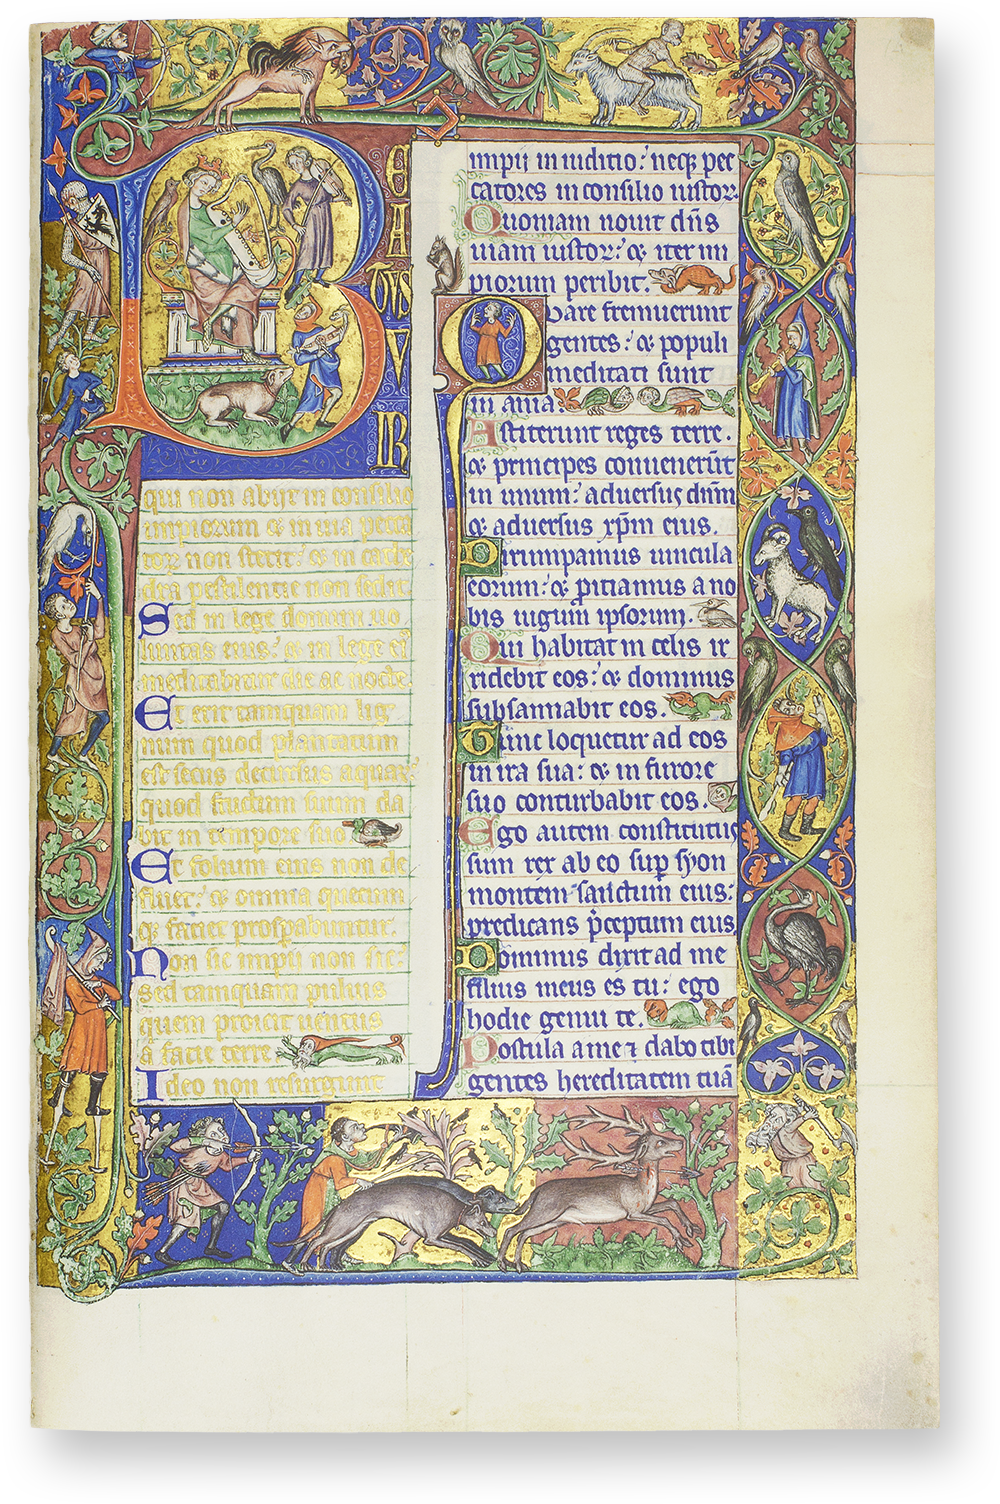 BEATVS VIR
qui non abijt in consilio
impiorum & in uia pecca
tor̄ non stetit: & in cathe
dra pestilentie non sedit.
Sed in lege domini uo
luntas eius: & in lege ei'
meditabitur die ac nocte.
Et erit tamquam lig
num quod plantatum
est secus decursus aquar̄
quod fructum suum da
bit in tempore suo
Et folium eius non de
fluet: & omnia quecum
q; faciet prosꝑabuntur.
Non sic impii non sic:
sed tamquam puluis
quem proicit uentus
a facie terre
Ideo non resurgunt
impij in iuditio: neq; pec
catores in consilio iustor̄.
Quoniam nouit dn̄s
uiam iustor̄: & iter im
piorum peribit.
Quare fremuerunt
gentes: & populi
meditati sunt
in ania:
Astiterunt reges terre.
& principes conuenerūt
in unum: aduersus dnm
& aduersus xp̄m eius.
Dirumpamus uincula
eorum: & piciamus a no
bis iugum ipsorum.
Qui habitat in celis ir
ridebit eos: & dominus
subsannabit eos.
Tunc loquetur ad eos
in ira sua: & in furore
suo conturbabit eos.
Ego autem constitutus
sum rex ab eo sup̄ syon
montem sanctum eius:
predicans p̄ceptum eius
Dominus dixit ad me
filius meus es tu: ego
hodie genui te.
Postula a me ⁊ dabo tibi
gentes hereditatem tuā